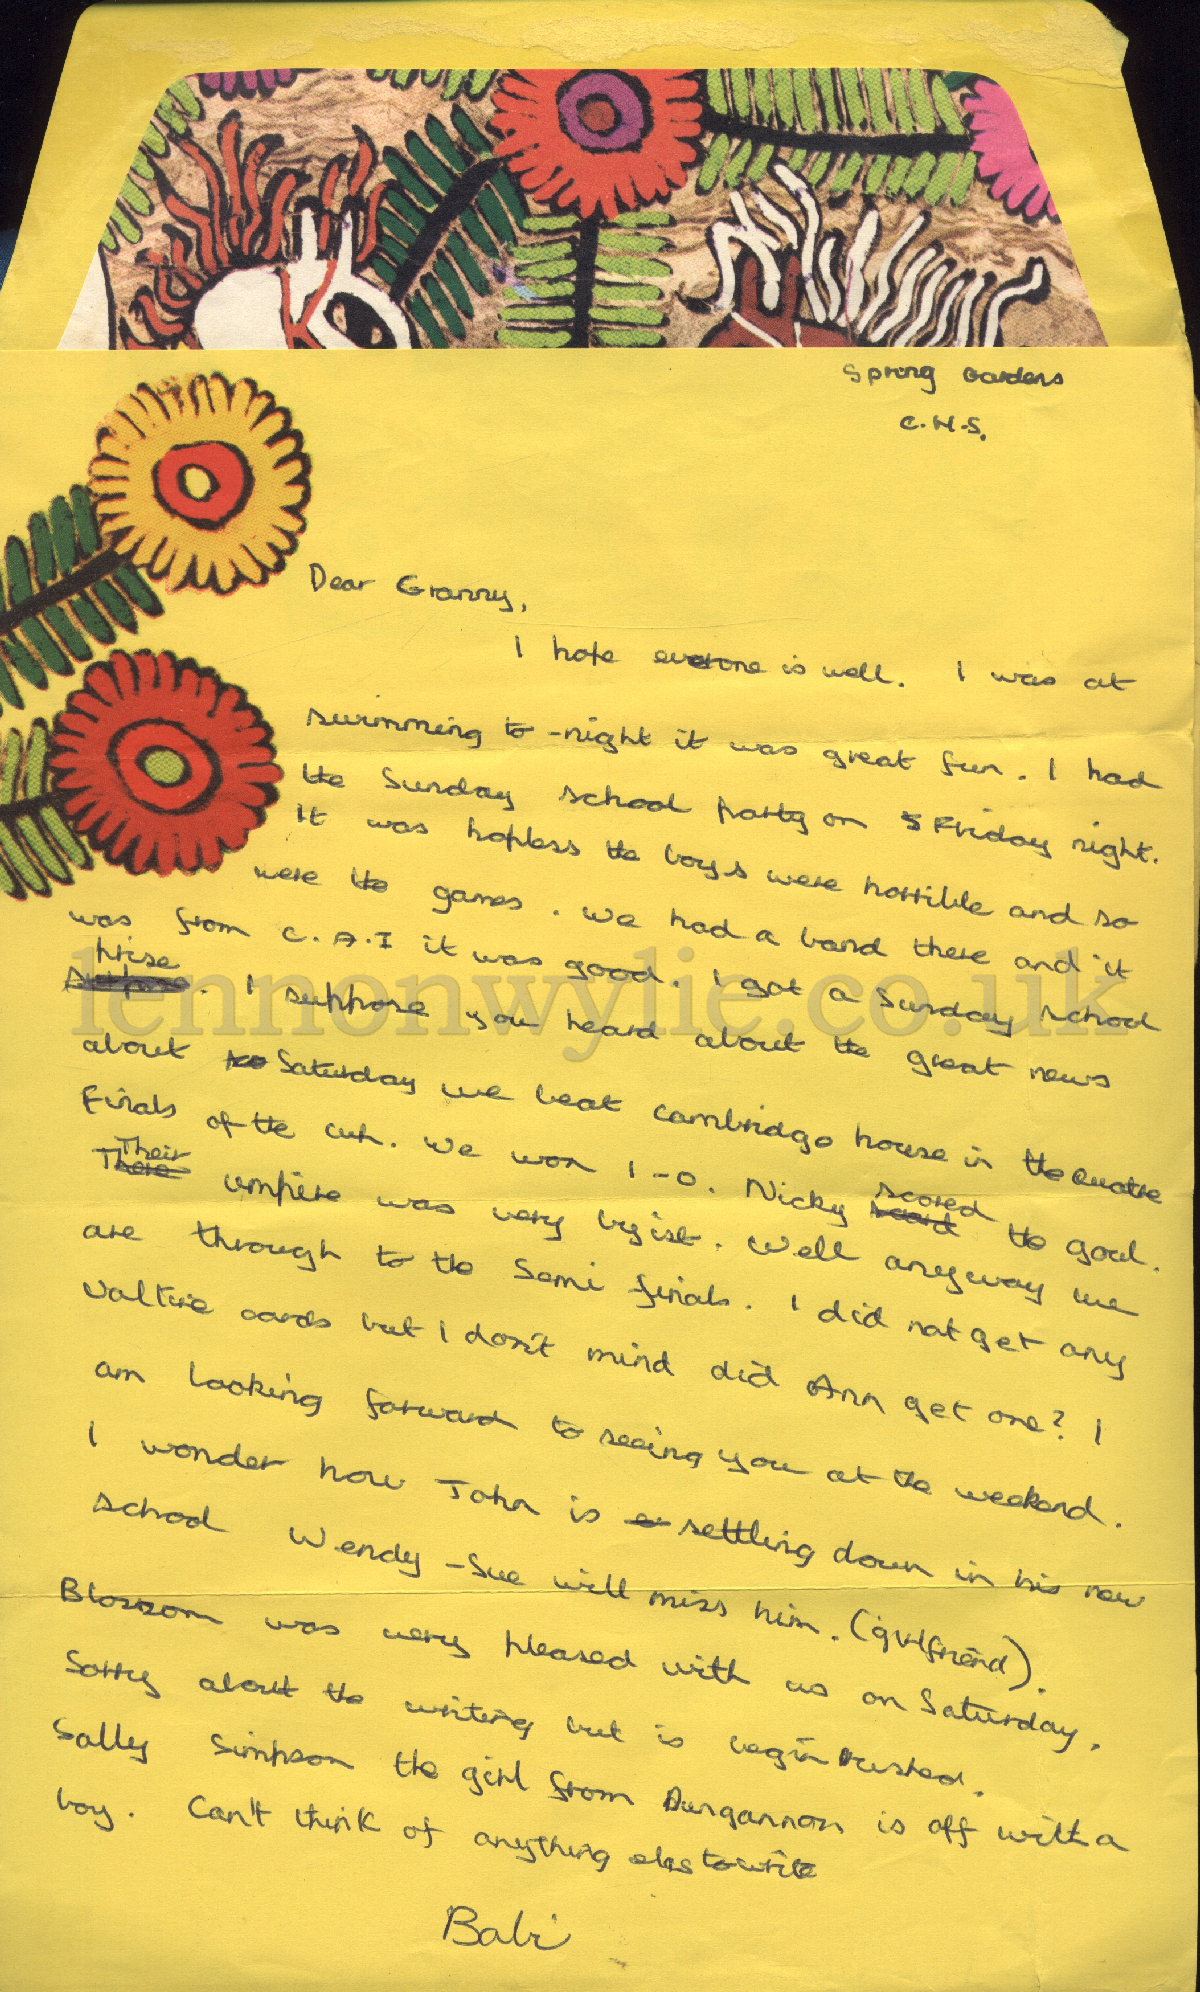 Spring Gardens
C.H.S.
Dear Granny,
I hope everone is well. I was at
swimming to-night it was great fun. I had
the Sunday school party on Friday night.
It was hopless the boys were horrible and so
were the games. We had a band there and it
was from C.A.I it was good. I got a Sunday school
prise. I suppose you heard about the great news
about Saturday we beat Cambridge house in the Quatre
Finals of the cup. We won 1-0. Nicky scored the goal.
Their umpire was very byist. Well anyway we
are through to the Semi finals. I did not get any
Valtine cards but I don't mind did Ann get one? I
am looking forward to seeing you at the weekend.
I wonder how John is settling down in his new
school Wendy-Sue will miss him. (girlfriend).
Blossom was very pleased with us on Saturday.
Sorry about the writing but is begin rushed.
Sally Simpson the girl from Dungannon is off with a
boy. Can't think of anything els to write
Babi
lennonwylie.co.uk